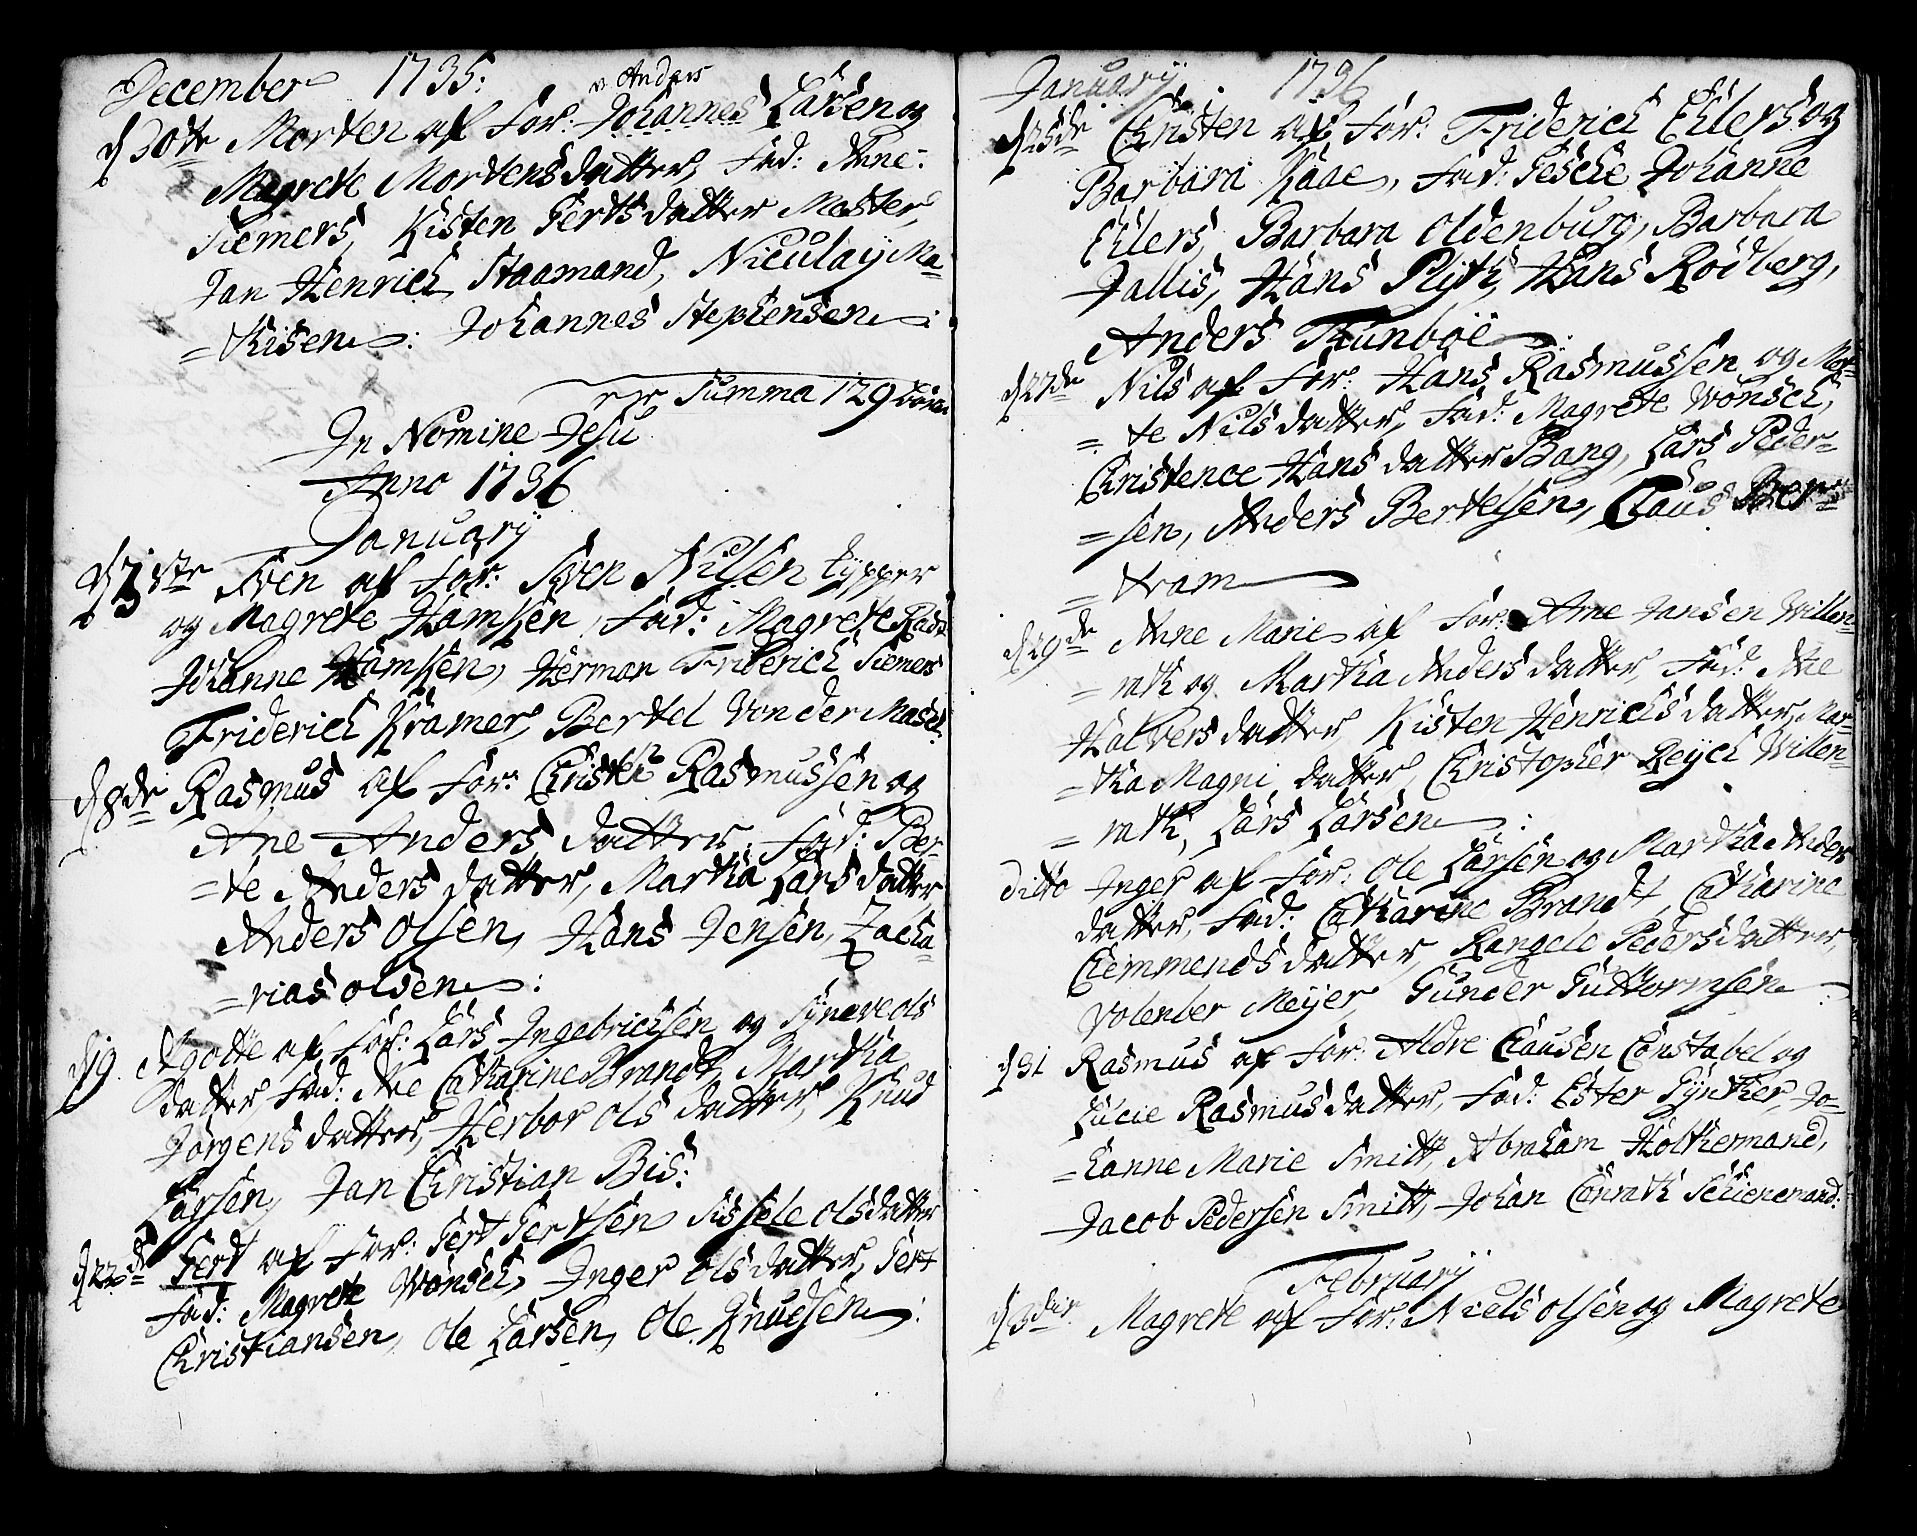 December 1735:
v. Anders
d 30te Morten af For: Johannes Larsen og
Magrete Mortensdatter, Fad: Anne
Siemers, Kisten Gertsdatter Mester,
Jan Henrich Staamand, Niculaij Ma-
=thisen: Johannes Stephensen:
Summa 129 børn
In Nomine Jesu
Anno 1736
Januarij
d 1ste Sven af For: Sven Nilsen typper
og Magrete Hamken, Fad: Magrete
Johanne Hamken, Herman Friderich Siemers
Friderich Kramer, Bertel Von der
d 8de Rasmus af For: Christen Rasmussen og
Ane Andersdatter. Fad: Ber-
=te Andersdatter, Martha Larsdatter
Anders Olsen, Hans Jensen, Zacha-
=rias Olsen:
d 19 Agotte af For: Lars Ingebrichsen og Syneve Ols
datter, Fad: Ane Catharine Brandt, Martha
Jørgensdatter, Herbor Olsdatter, Knud
Larsen, Jan Christian Bis:
d 22de Gert af For: Gert Gertsen Sissele Olsdatter
Fad: Magrete Wønsch, Inger Olsdatter, Gert
Christiansen, Ole Larsen, Ole Knudsen:
Januarij 1736
d 25de Christen af For: Friderich Ehlers og
Barbara Kaae, Fad: Gesche Johanne
Ehlers, Barbara Oldenburg, Barbara
Jallis, Hans Rijth, Hans Rodberg,
Anders Trunboe
d 27de Nils af For: Hans Rasmussen og Mag-
=te Nilsdatter, Fad: Magrete Wonsch,
Christence Hansdatter Bang, Lars Peder-
=sen, Anders Bertelsen, Claus Ber-
=tram
d 29de Anne Marie af For: Arne Jansen Willen-
=rath og Martha Andersdatter, Fad: Ane
Halversdatter, Kisten Henrichsdatter, Mar-
=tha Magnidatter, Christopher Reijch Willen-
=rath, Lars Larsen:
ditto Inger af For: Ole Larsen og Martha Anders
datter, Fad: Catharine Brandt, Catharine
Clemmendsdatter, Rangele Pedersdatter,
Volenber Meijer, Gunder Guttormsen
d 31 Rasmus af For: Aldre Clausen Constabel og
Lucie Rasmusdatter, Fad: Ester Gynther, Jo-
=hanne Marie Smitt, Abraham Holthermand,
Jacob Pedersen Smitt, Johan Conrath Schienemand:
Februarij
d 3die Magrete af For: Niels Olsen og Magrete